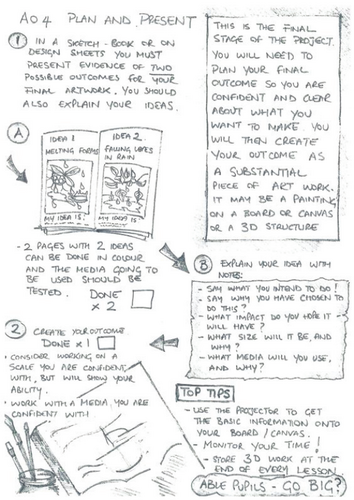 AO4 PLAN AND PRESENT
1 IN A SKETCH-BOOK OR ON
DESIGN SHEETS YOU MUST
PRESENT EVIDENCE OF TWO
POSSIBLE OUTCOMES FOR YOUR
FINAL ARTWORK. YOU SHOULD
ALSO EXPLAIN YOUR IDEAS.
THIS IS THE FINAL
STAGE OF THE PROJECT.
YOU WILL NEED TO
PLAN YOUR FINAL
OUTCOME SO YOU ARE
CONFIDENT AND CLEAR
ABOUT WHAT YOU
WANT TO MAKE. YOU
WILL THEN CREATE
YOUR OUTCOME AS
A SUBSTANTIAL
PIECE OF ART WORK.
IT MAY BE A PAINTING,
ON A BOARD OR CANVAS
OR A 3D STRUCTURE
A
IDEA 1
MELTING FORMS
MY IDEA IS:
IDEA 2
FALLING LEAVES
IN RAIN
MY IDEA IS:
- 2 PAGES WITH 2 IDEAS
CAN BE DONE IN COLOUR
AND THE MEDIA GOING TO
BE USED SHOULD BE
TESTED.
DONE
x 2
B EXPLAIN YOUR IDEA WITH
NOTES:
- SAY WHAT YOU INTEND TO DO!
- SAY WHY YOU HAVE CHOSEN TO
DO THIS?
- WHAT IMPACT DO YOU HOPE IT
WILL HAVE?
- WHAT SIZE WILL IT BE, AND
WHY?
- WHAT MEDIA WILL YOU USE,
AND WHY?
2 CREATE YOUR OUTCOME
DONE x 1
• CONSIDER WORKING ON A
SCALE YOU ARE CONFIDENT
WITH, BUT WILL SHOW YOUR
ABILITY.
• WORK WITH A MEDIA YOU ARE
CONFIDENT WITH
TOP TIPS
- USE THE PROJECTOR TO GET
THE BASIC INFORMATION ONTO
YOUR BOARD/CANVAS.
- MONITOR YOUR TIME!
- STORE 3D WORK AT THE
END OF EVERY LESSON
ABLE PUPILS - GO BIG?